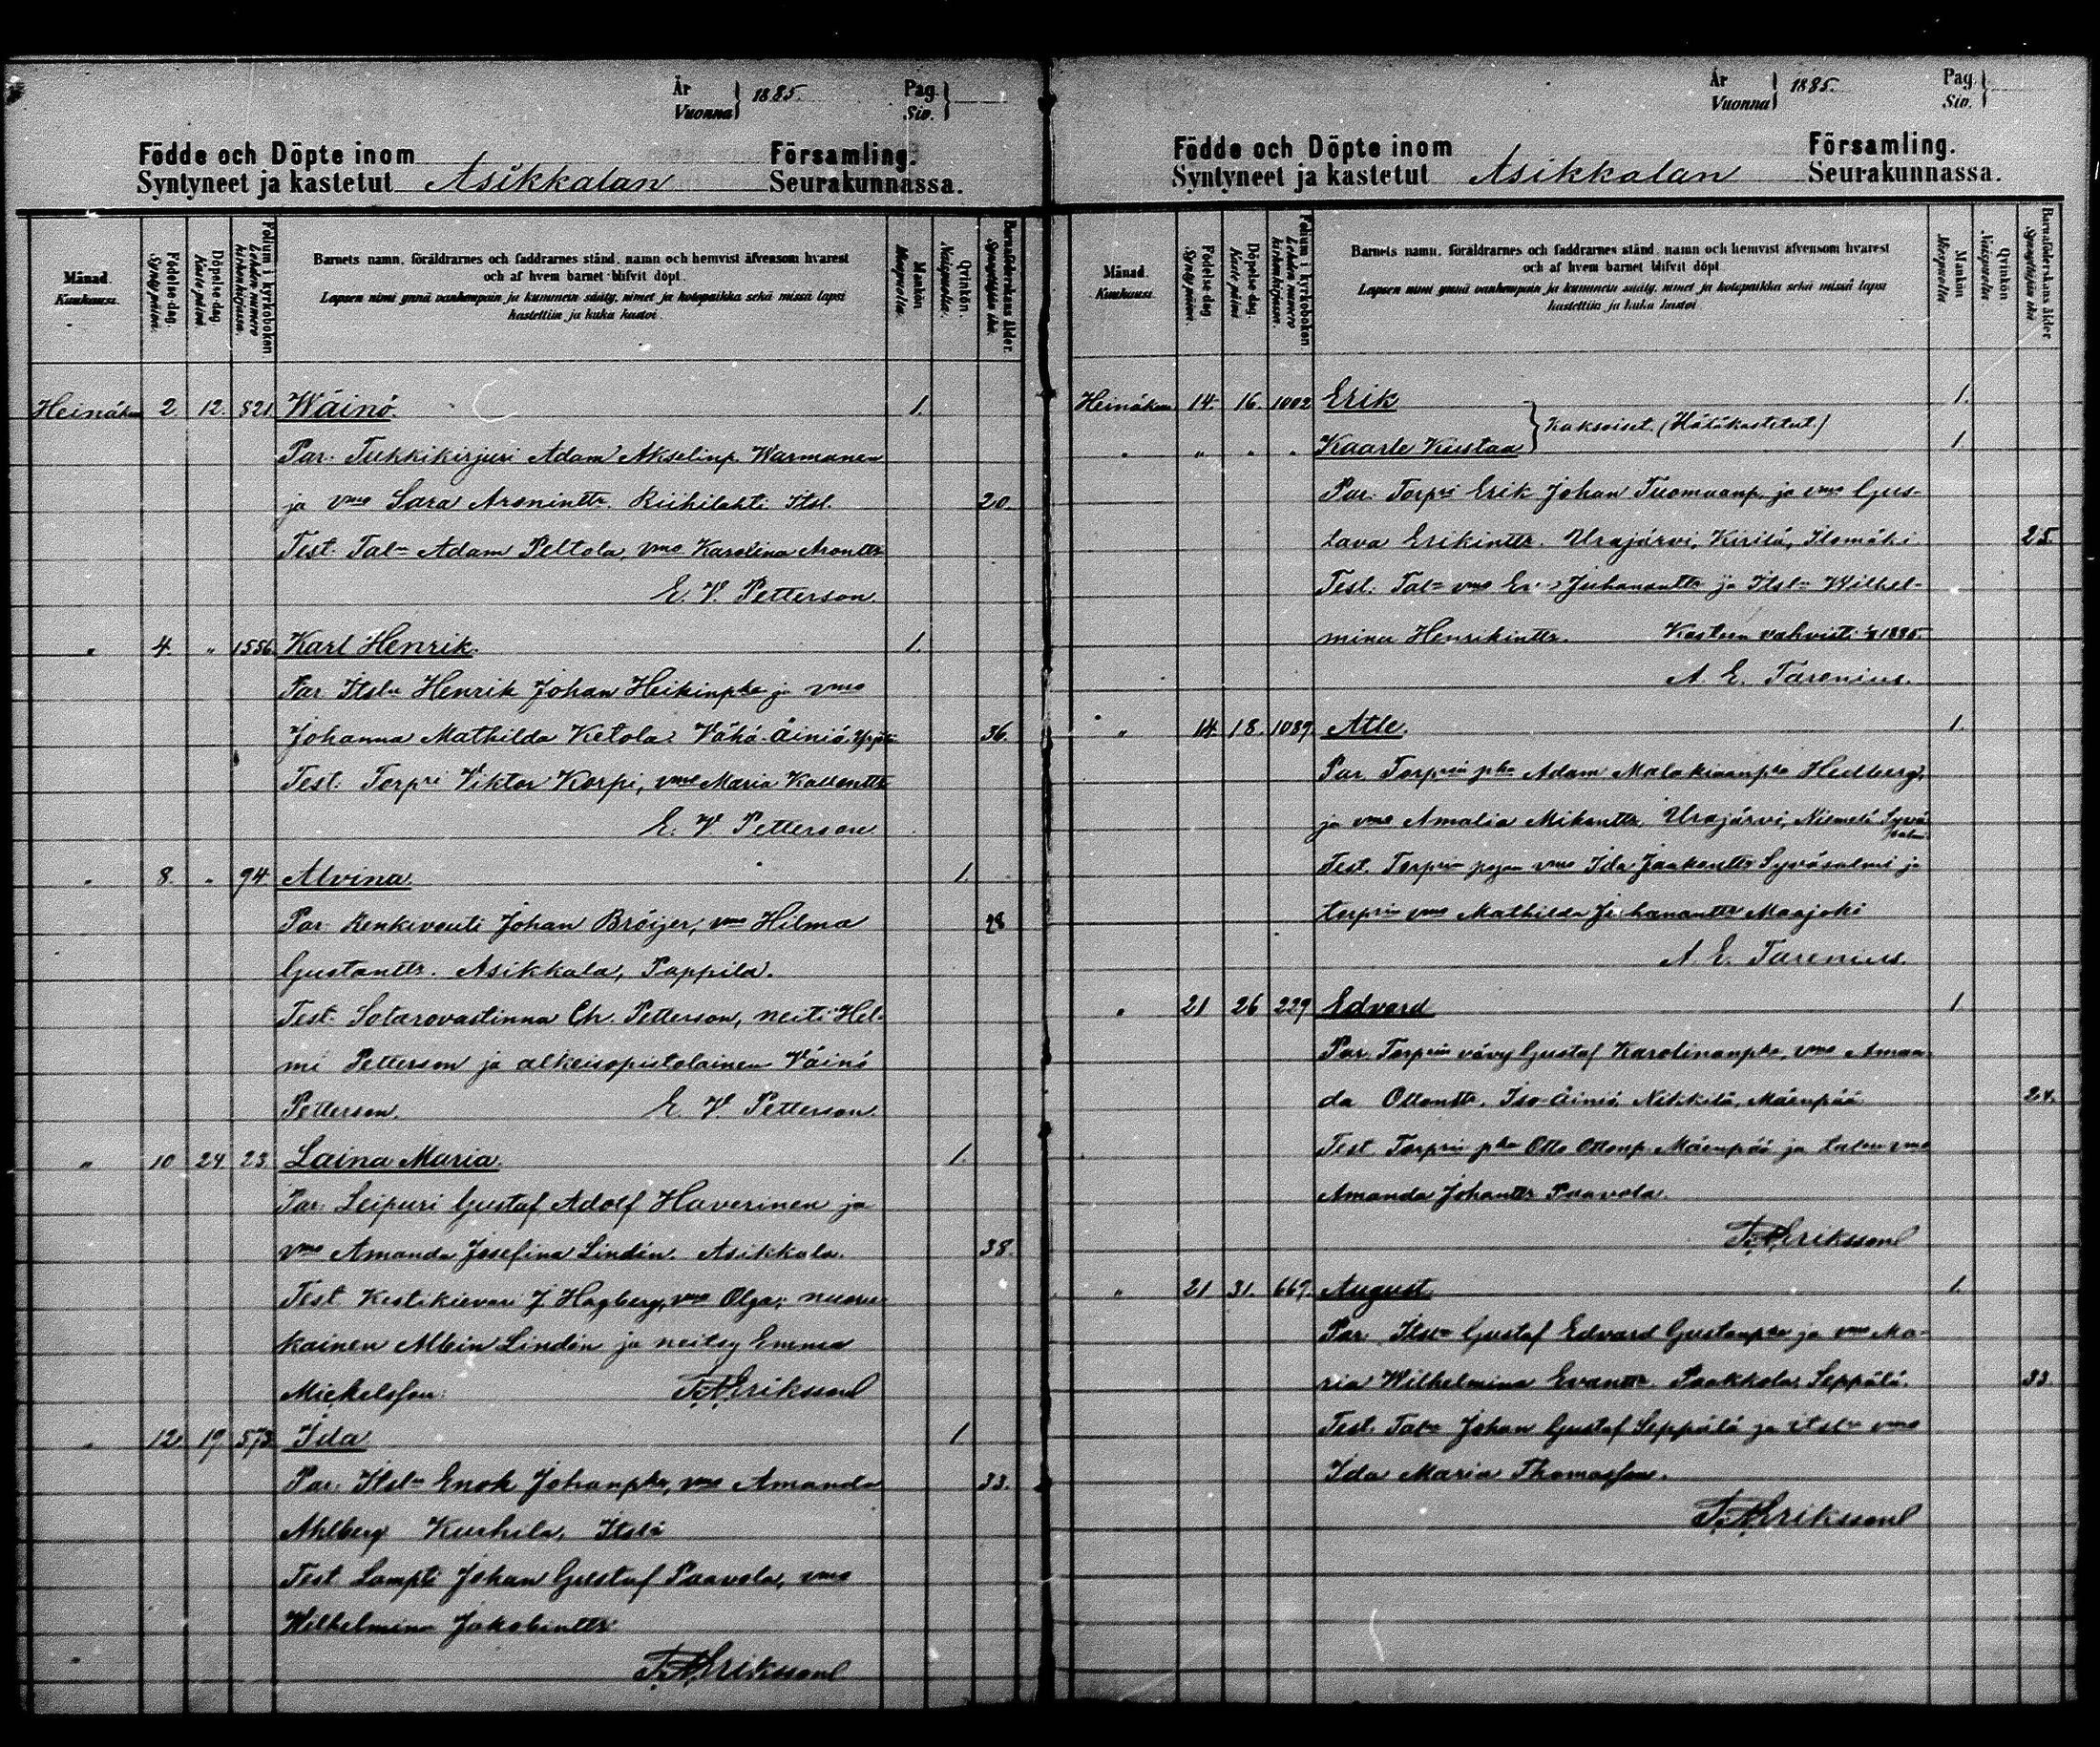 År
Vuonna } 1885.
Pag.
Siv. }
Födde och Döpte inom
Syntyneet ja kastetut Asikkalan
Församling.
Seurakunnassa.
Månad.
Kuukausi.
Födelse dag.
Synty päivä.
Döpelse dag
Kaste päivä
Folium i kyrkoboken
Lehden numero kirkonkirjassa.
Barnets namn, föräldrarnes och faddrarnes stånd, namn och hemvist äfvensom hvarest
och af hvem barnet blifvit döpt.
Lapsen nimi ynnä vanhempain ja kummein sääty, nimet ja kotopaikka sekä missä lapsi
kastettiin ja kuka kastoi.
Mankön
Miespuolia.
Qvinkön.
Naispuolia.
Barnaföderskans ålder.
Synnyttäjän ikä.
Heinäkuu 2. 12. 821 Wäinö. 1.
Par. Tukkikirjuri Adam Akselinp. Warmanen
ja vmo Sara Aroninttr. Riihilahti Itsl. 20.
Test. Tal. Adam Peltola, vmo Karolina Aronttr
E. V. Petterson.
" 4. " 1556. Karl Henrik. 1.
Par. Itsln Henrik Johan Heikinpka ja vmo
Johanna Mathilda Ketola. Vähä-Äiniö, 36.
Test. Torpri Viktor Korpi, vmo Maria Kallenttr
E. V. Petterson
" 8. " 94 Alvina. 1.
Par. Renkivouti Johan Bröijer, vmo Hilma 28
Gustanttr. Asikkala, Pappila.
Test. Sotarovastinna Ch. Petterson, neiti Hel-
mi Petterson ja alkeisopistolainen Väinö
Petterson. E. V. Petterson
" 10 24 23. Laina Maria. 1.
Par. Leipuri Gustaf Adolf Haverinen ja
vmo Amanda Josefina Lindén. Asikkala. 38.
Test. Kestikievari J Hagberg, vmo Olga, nuoru
kainen Albin Lindén ja neitsy Emma
Mickelsson. Eriksson
" 12. 19 573. Ida 1
Par. Itsln Enok Johanpka, vmo Amanda 33.
Ahlberg Kurhila, Itslä
Test Lampti Johan Gustaf Paavola, vmo
Wilhelmina Jakobinttr
Eriksson
År
Vuonna } 1885.
Pag.
Siv. }
Födde och Döpte inom
Syntyneet ja kastetut Asikkalan
Församling.
Seurakunnassa.
Månad.
Kuukausi.
Födelse dag
Synty päivä.
Döpelse dag.
Kaste päivä
Folium i kyrkoboken
Lehden numero kirkonkirjassa.
Barnets namn, föräldrarnes och faddrarnes stånd, namn och hemvist äfvensom hvarest
och af hvem barnet blifvit döpt.
Lapsen nimi ynnä vanhempain ja kummein sääty, nimet ja kotopaikka sekä missä lapsi
kastettiin ja kuka kastoi.
Mankön
Miespuolia.
Qvinkön
Naispuolia
Barnaföderskans ålder
Synnyttäjän ikä
Heinäkuu 14. 16. 1002 Erik 1.
" " " " Kaarle Kustaa } Kaksoiset. (Hätäkastetut.) 1.
Par. Torpri Erik Johan Tuomaanp. ja vmo Gus-
tava Erikinttr. Urajärvi, Kirilä, Ilomäki 25.
Test. Tal vmo Juhananttr ja Itsl Wilhel-
mina Henrikinttr. Kasteen vahvisti 1885.
A. E. Tarenius.
" 14. 18. 1089. Atle. 1.
Par. Torprin pka Adam Malakiaanpka Hedberg,
ja vmo Amalia Mikonttr Urajärvi, Niemelä Syvä
salmi
Test. Torprin pojan vmo Ida Jaakonttr Syväsalmi ja
torprin vmo Mathilda Johananttr Maajoki
A. E. Tarenius.
" 21 26 229 Edvard 1.
Par. Torprin vävy Gustaf Karolinanpka, vmo Aman
da Ottontr. Iso-Äiniö, Nikkilä, Mäenpää 24.
Test. Torprin pka Otto Ottonp. Mäenpää ja talon vmo
Amanda Johanttr Paavola.
Eriksson
" 21 31. 669. August. 1.
Par. Itsln Gustaf Edvard Gustanpka ja vmo Ma-
ria Wilhelmina Evantr. Paakkola, Seppälä. 33.
Test. Tal Johan Gustaf Seppälä ja itsln vmo
Ida Maria Thomasson.
Eriksson